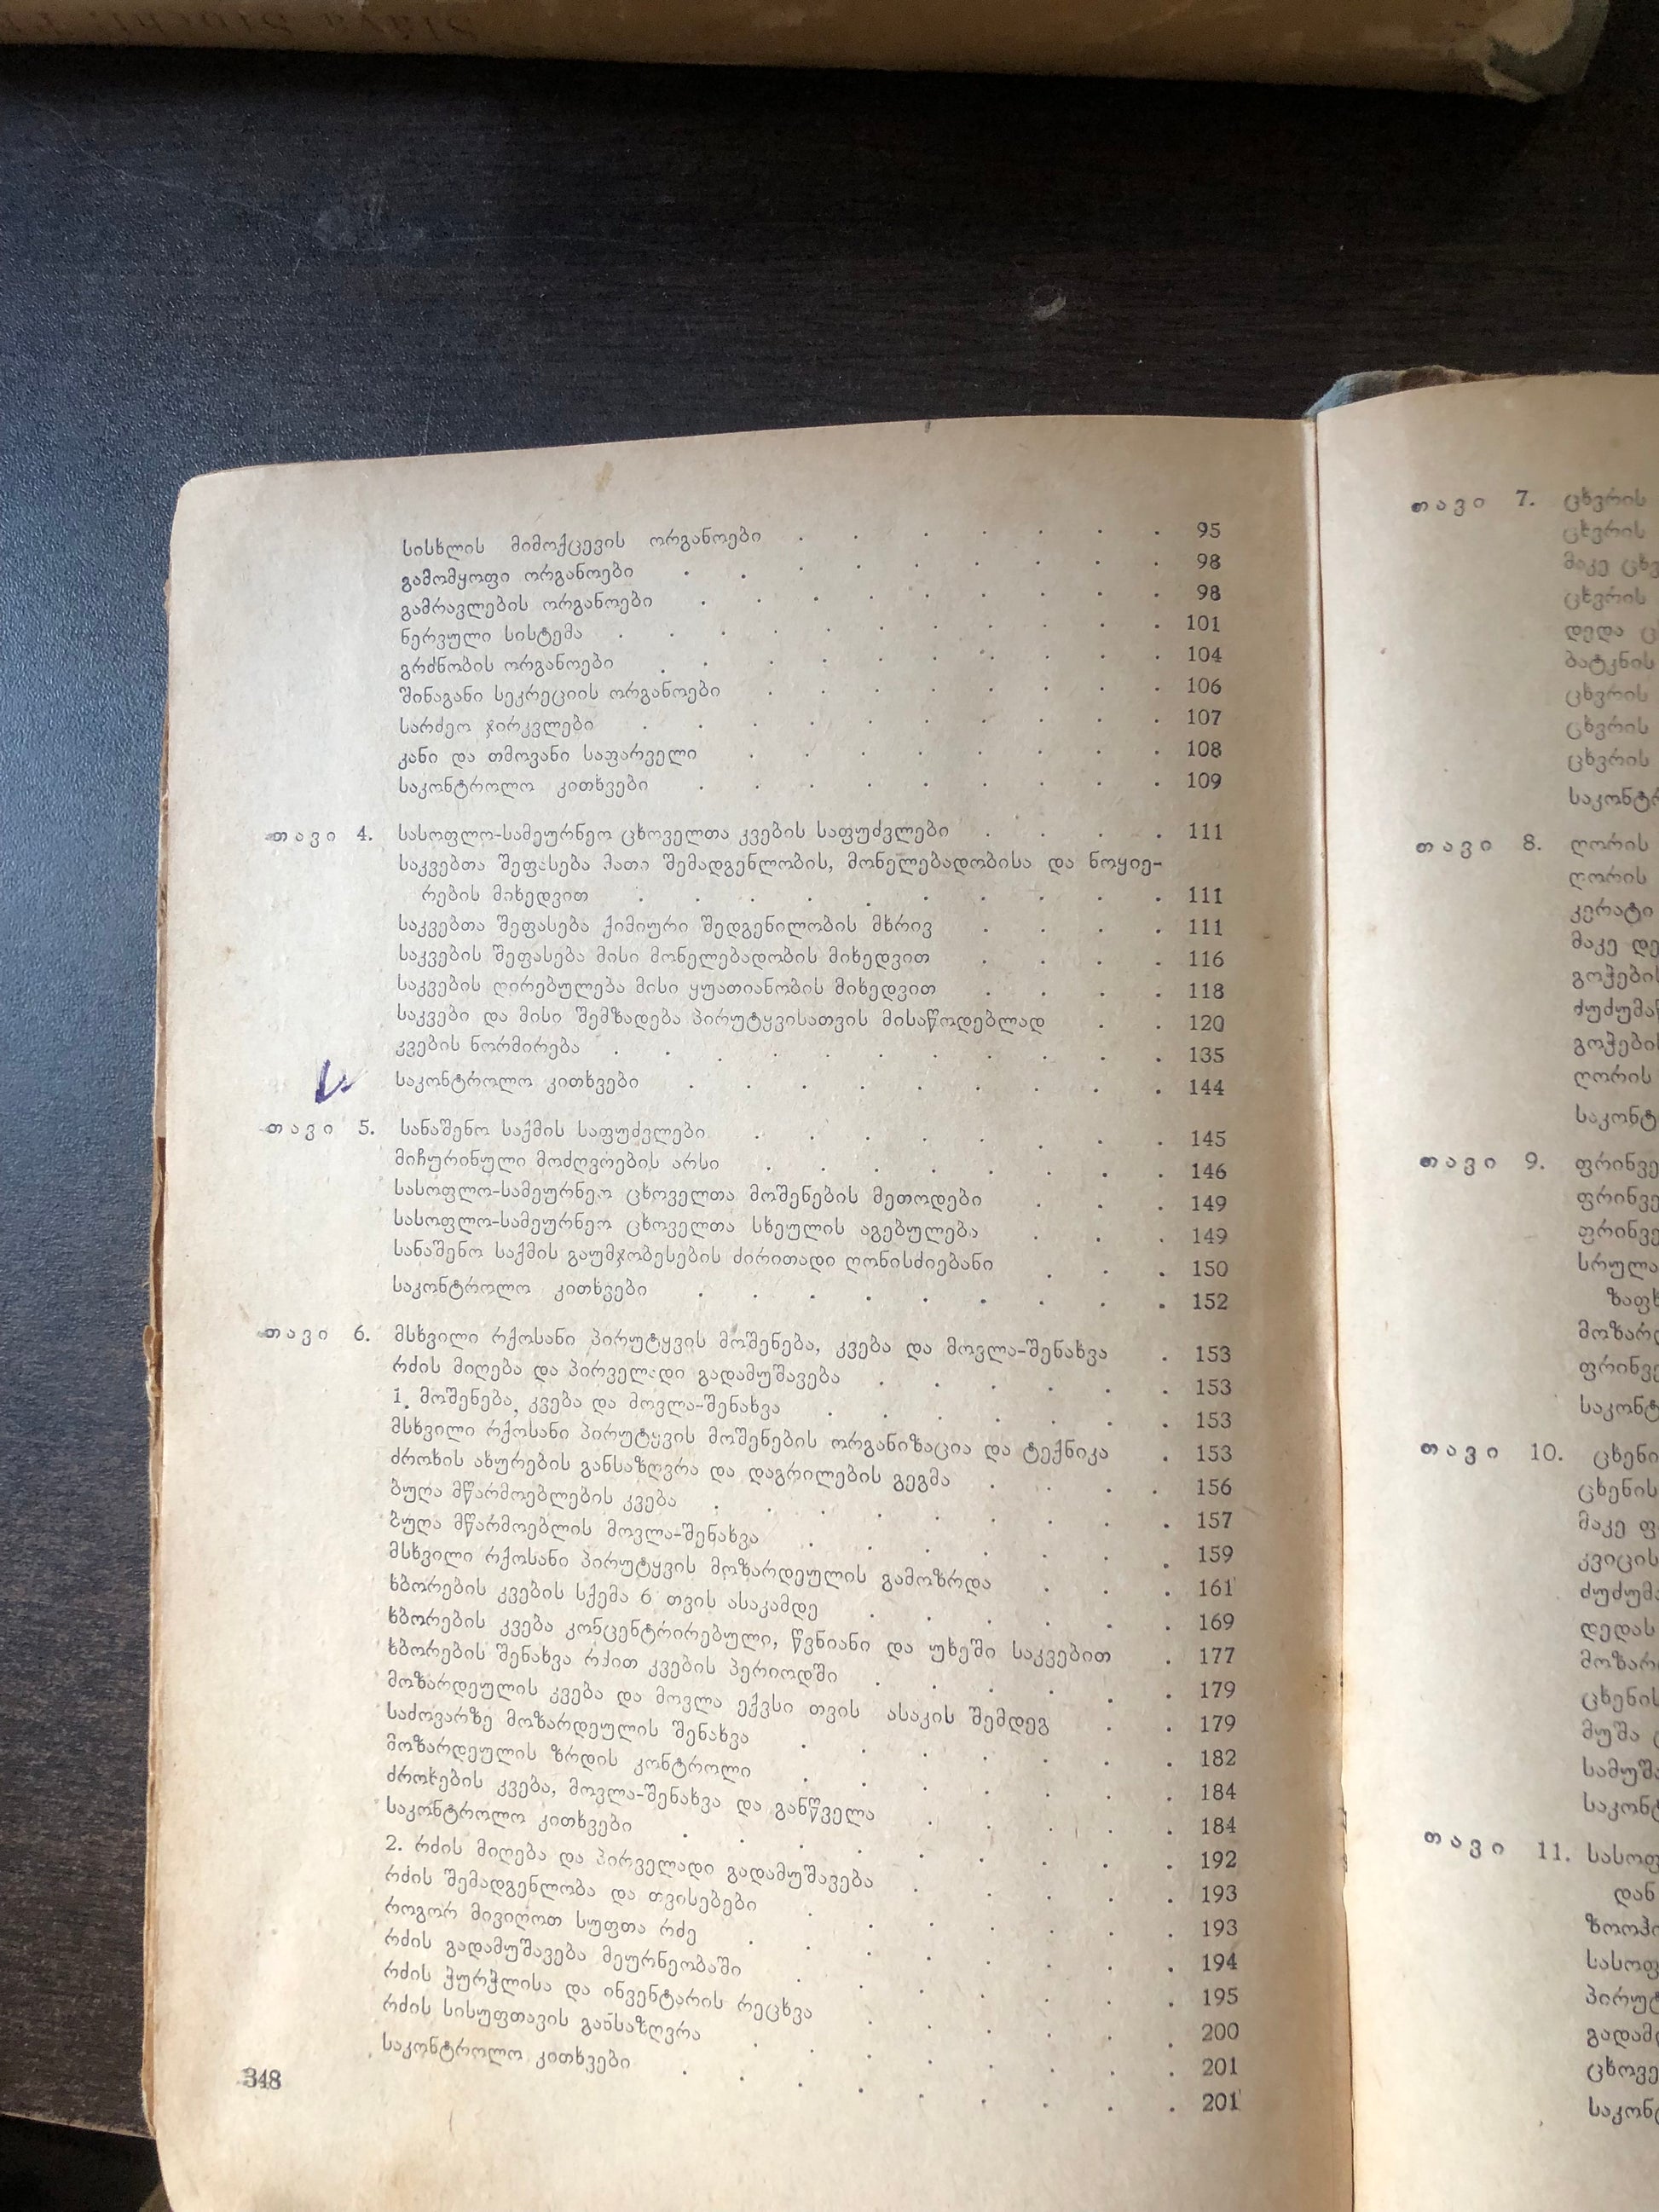 სისხლის მიმოქცევის ორგანოები . . . . . . . 95
გამომყოფი ორგანოები . . . . . . . . . 98
გამრავლების ორგანოები . . . . . . . . . 98
ნერვული სისტემა . . . . . . . . . . 101
გრძნობის ორგანოები . . . . . . . . . 104
შინაგანი სეკრეციის ორგანოები . . . . . . . 106
სარძეო ჯირკვლები . . . . . . . . . 107
კანი და თმოვანი საფარველი . . . . . . . 108
საკონტროლო კითხვები . . . . . . . . 109
თავი 4. სასოფლო-სამეურნეო ცხოველთა კვების საფუძვლები . . . . 111
საკვებთა შეფასება მათი შემადგენლობის, მონელებადობისა და ნოყიე-
რების მიხედვით . . . . . . . . . 111
საკვებთა შეფასება ქიმიური შედგენილობის მხრივ . . . . 111
საკვების შეფასება მისი მონელებადობის მიხედვით . . . . 116
საკვების ღირებულება მისი ყუათიანობის მიხედვით . . . . 118
საკვები და მისი შემზადება პირუტყვისათვის მისაწოდებლად . . 120
კვების ნორმირება . . . . . . . . . . 135
საკონტროლო კითხვები . . . . . . . . 144
თავი 5. სანაშენო საქმის საფუძვლები . . . . . . . 145
მიჩურინული მოძღვრების არსი . . . . . . . 146
სასოფლო-სამეურნეო ცხოველთა მოშენების მეთოდები . . . 149
სასოფლო-სამეურნეო ცხოველთა სხეულის აგებულება . . . 149
სანაშენო საქმის გაუმჯობესების ძირითადი ღონისძიებანი . . . 150
საკონტროლო კითხვები . . . . . . . . 152
თავი 6. მსხვილი რქოსანი პირუტყვის მოშენება, კვება და მოვლა-შენახვა . 153
რძის მიღება და პირველადი გადამუშავება . . . . . 153
1. მოშენება, კვება და მოვლა-შენახვა . . . . . . 153
მსხვილი რქოსანი პირუტყვის მოშენების ორგანიზაცია და ტექნიკა . 153
ძროხის ახურების განსაზღვრა და დაგრილების გეგმა . . . . 156
ბუღა მწარმოებლების კვება . . . . . . . . 157
ბუღა მწარმოებლის მოვლა-შენახვა . . . . . . 159
მსხვილი რქოსანი პირუტყვის მოზარდეულის გამოზრდა . . . 161
ხბორების კვების სქემა 6 თვის ასაკამდე . . . . . 169
ხბორების კვება კონცენტრირებული, წვნიანი და უხეში საკვებით . 177
ხბორების შენახვა რძით კვების პერიოდში . . . . . 179
მოზარდეულის კვება და მოვლა ექვსი თვის ასაკის შემდეგ . . 179
საძოვარზე მოზარდეულის შენახვა . . . . . . 182
მოზარდეულის ზრდის კონტროლი . . . . . . 184
ძროხების კვება, მოვლა-შენახვა და განწველა . . . . . 184
საკონტროლო კითხვები . . . . . . . . 192
2. რძის მიღება და პირველადი გადამუშავება . . . . . 193
რძის შემადგენლობა და თვისებები . . . . . . 193
როგორ მივიღოთ სუფთა რძე . . . . . . . 194
რძის გადამუშავება მეურნეობაში . . . . . . 195
რძის ჭურჭლისა და ინვენტარის რეცხვა . . . . . 200
რძის სისუფთავის განსაზღვრა . . . . . . . 201
საკონტროლო კითხვები . . . . . . . . 201
348
თავი 7. ცხვრის
ცხვრის
მაკე
ცხვრის
დედა
ბატკნის
ცხვრის
ცხვრის
ცხვრის
თავი 8. ღორის
ღორის
კერატი
მაკე
ღორის
თავი 9.
თავი 10.
ცხენის
მაკე
დედას
მუშა
თავი 11.